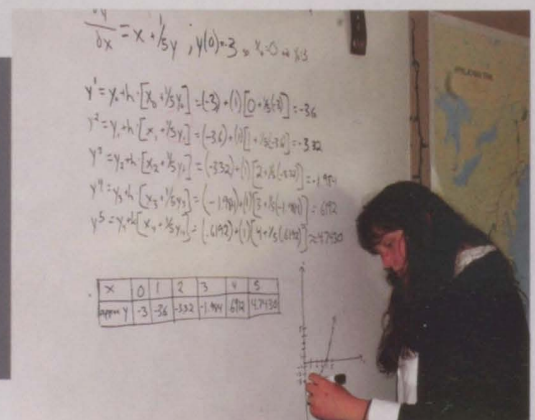 dy/dx = x + 1/5y ; y(0)=-3
y¹ = y₀+h·[x₀+1/5y₀] = (-3)+(1)[0+1/5(-3)] = -3.6
y² = y₁+h·[x₁+1/5y₁] = (-3.6)+(1)[1+1/5(-3.6)] = -3.32
y³ = y₂+h·[x₂+1/5y₂] = (-3.32)+(1)[2+1/5(-3.32)] = -1.984
y⁴ = y₃+h[x₃+1/5y₃] = (-1.984)+(1)[3+1/5(-1.984)] = .6192
y⁵ = y₄+h[x₄+1/5y₄] = (.6192)+(1)[4+1/5(.6192)] ≈ 4.7430
x 0 1 2 3 4 5
appx y -3 -3.6 -3.32 -1.984 .6192 4.7430